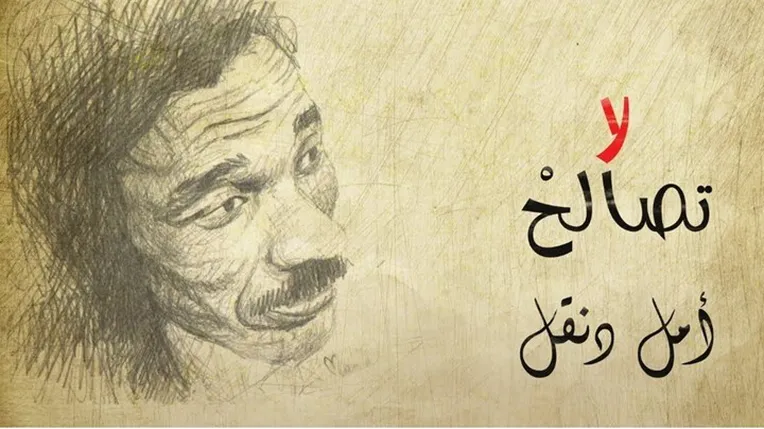 لا
تصالحْ
أمل دنقل